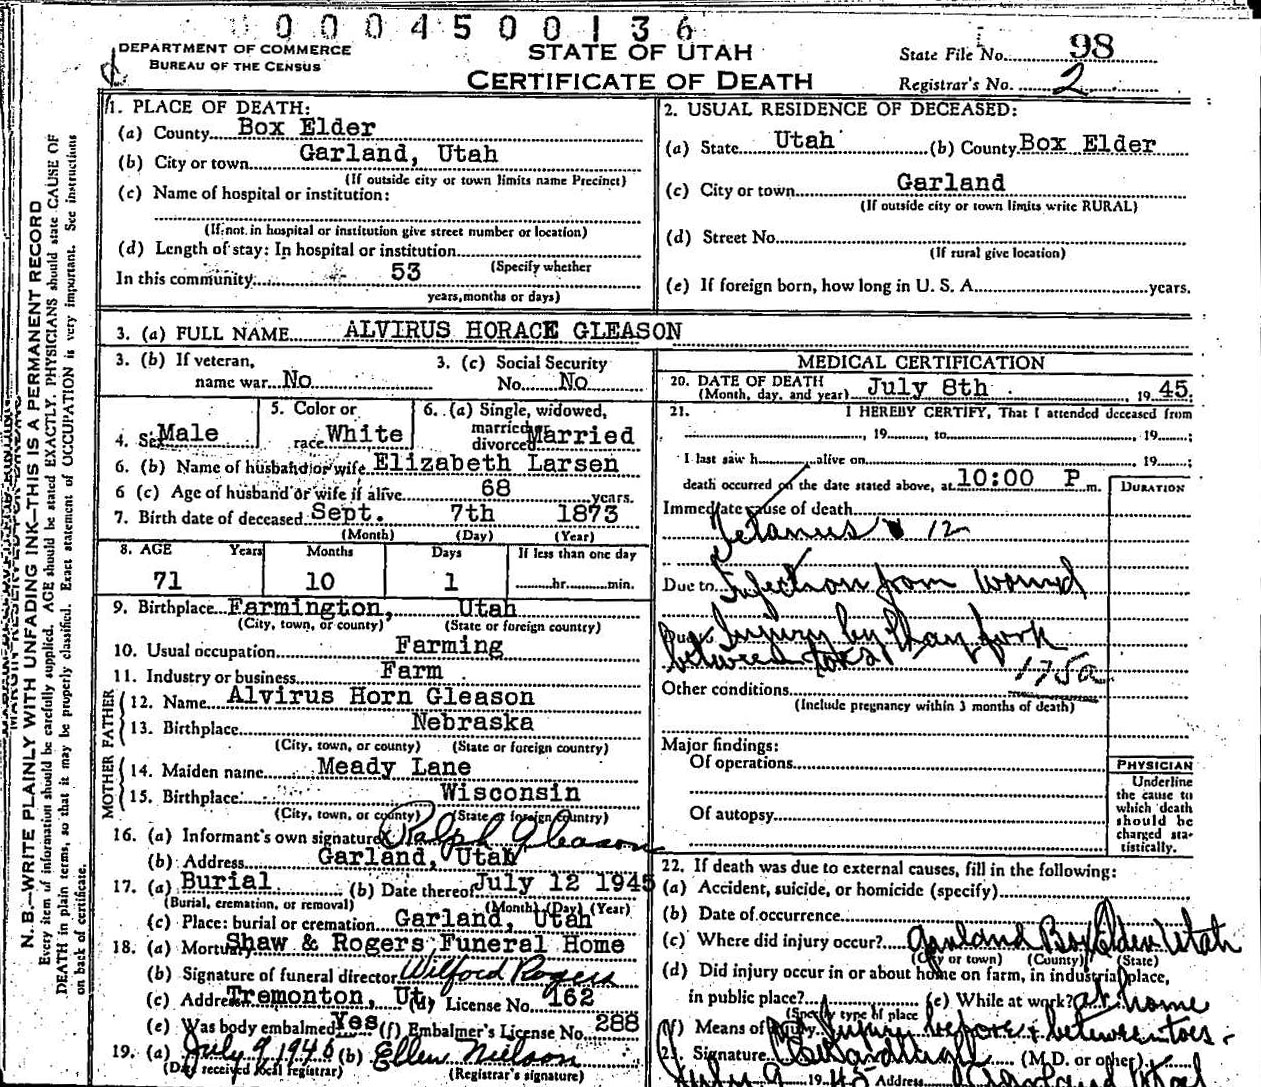 0004500136
DEPARTMENT OF COMMERCE
BUREAU OF THE CENSUS
STATE OF UTAH
CERTIFICATE OF DEATH
State File No. 98
Registrar's No. 2
N. B.—WRITE PLAINLY WITH UNFADING INK—THIS IS A PERMANENT RECORD
Every item of information should be carefully supplied. AGE should be stated EXACTLY. PHYSICIANS should state CAUSE OF
DEATH in plain terms, so that it may be properly classified. Exact statement of OCCUPATION is very important. See instructions
on back of certificate.
1. PLACE OF DEATH:
(a) County Box Elder
(b) City or town Garland, Utah
(If outside city or town limits name Precinct)
(c) Name of hospital or institution:
(If not in hospital or institution give street number or location)
(d) Length of stay: In hospital or institution
(Specify whether
In this community 53
years, months or days)
2. USUAL RESIDENCE OF DECEASED:
(a) State Utah (b) County Box Elder
(c) City or town Garland
(If outside city or town limits write RURAL)
(d) Street No.
(If rural give location)
(e) If foreign born, how long in U. S. A. years.
3. (a) FULL NAME ALVIRUS HORACE GLEASON
3. (b) If veteran,
name war No
3. (c) Social Security
No. No
4. Sex Male
5. Color or
race White
6. (a) Single, widowed,
married or
divorced Married
6. (b) Name of husband or wife Elizabeth Larsen
6 (c) Age of husband or wife if alive 68 years.
7. Birth date of deceased Sept. 7th 1873
(Month) (Day) (Year)
8. AGE Years Months Days If less than one day
71 10 1 hr. min.
9. Birthplace Farmington, Utah
(City, town, or county) (State or foreign country)
10. Usual occupation Farming
11. Industry or business Farm
FATHER
12. Name Alvirus Horn Gleason
13. Birthplace Nebraska
(City, town, or county) (State or foreign country)
MOTHER
14. Maiden name Meady Lane
15. Birthplace Wisconsin
(City, town, or county) (State or foreign country)
16. (a) Informant's own signature Ralph Gleason
(b) Address Garland, Utah
17. (a) Burial (b) Date thereof July 12 1945
(Burial, cremation, or removal) (Month) (Day) (Year)
(c) Place: burial or cremation Garland, Utah
18. (a) Mortuary Shaw & Rogers Funeral Home
(b) Signature of funeral director Wilford Rogers
(c) Address Tremonton, Ut. (d) License No. 162
(e) Was body embalmed Yes (f) Embalmer's License No. 288
19. (a) July 9 1946 (b) Ellen Nielson
(Date received local registrar) (Registrar's signature)
MEDICAL CERTIFICATION
20. DATE OF DEATH
(Month, day, and year) July 8th, 1945.
21. I HEREBY CERTIFY, That I attended deceased from
, 19 , to , 19 ;
I last saw h alive on , 19 ;
death occurred on the date stated above, at 10:00 P. m.
DURATION
Immediate cause of death
Tetanus 12
Due to Infection from wound
Due to Injury by hay fork
between toes
175a
Other conditions
(Include pregnancy within 3 months of death)
Major findings:
Of operations
Of autopsy
PHYSICIAN
Underline
the cause to
which death
should be
charged sta-
tistically.
22. If death was due to external causes, fill in the following:
(a) Accident, suicide, or homicide (specify)
(b) Date of occurrence
(c) Where did injury occur? Garland Box Elder Utah
(City or town) (County) (State)
(d) Did injury occur in or about home on farm, in industrial place,
in public place? (e) While at work? at home
(Specify type of place
(f) Means of injury Injury before & between toes.
23. Signature (M.D. or other)
July 9 1945 Address Garland Utah